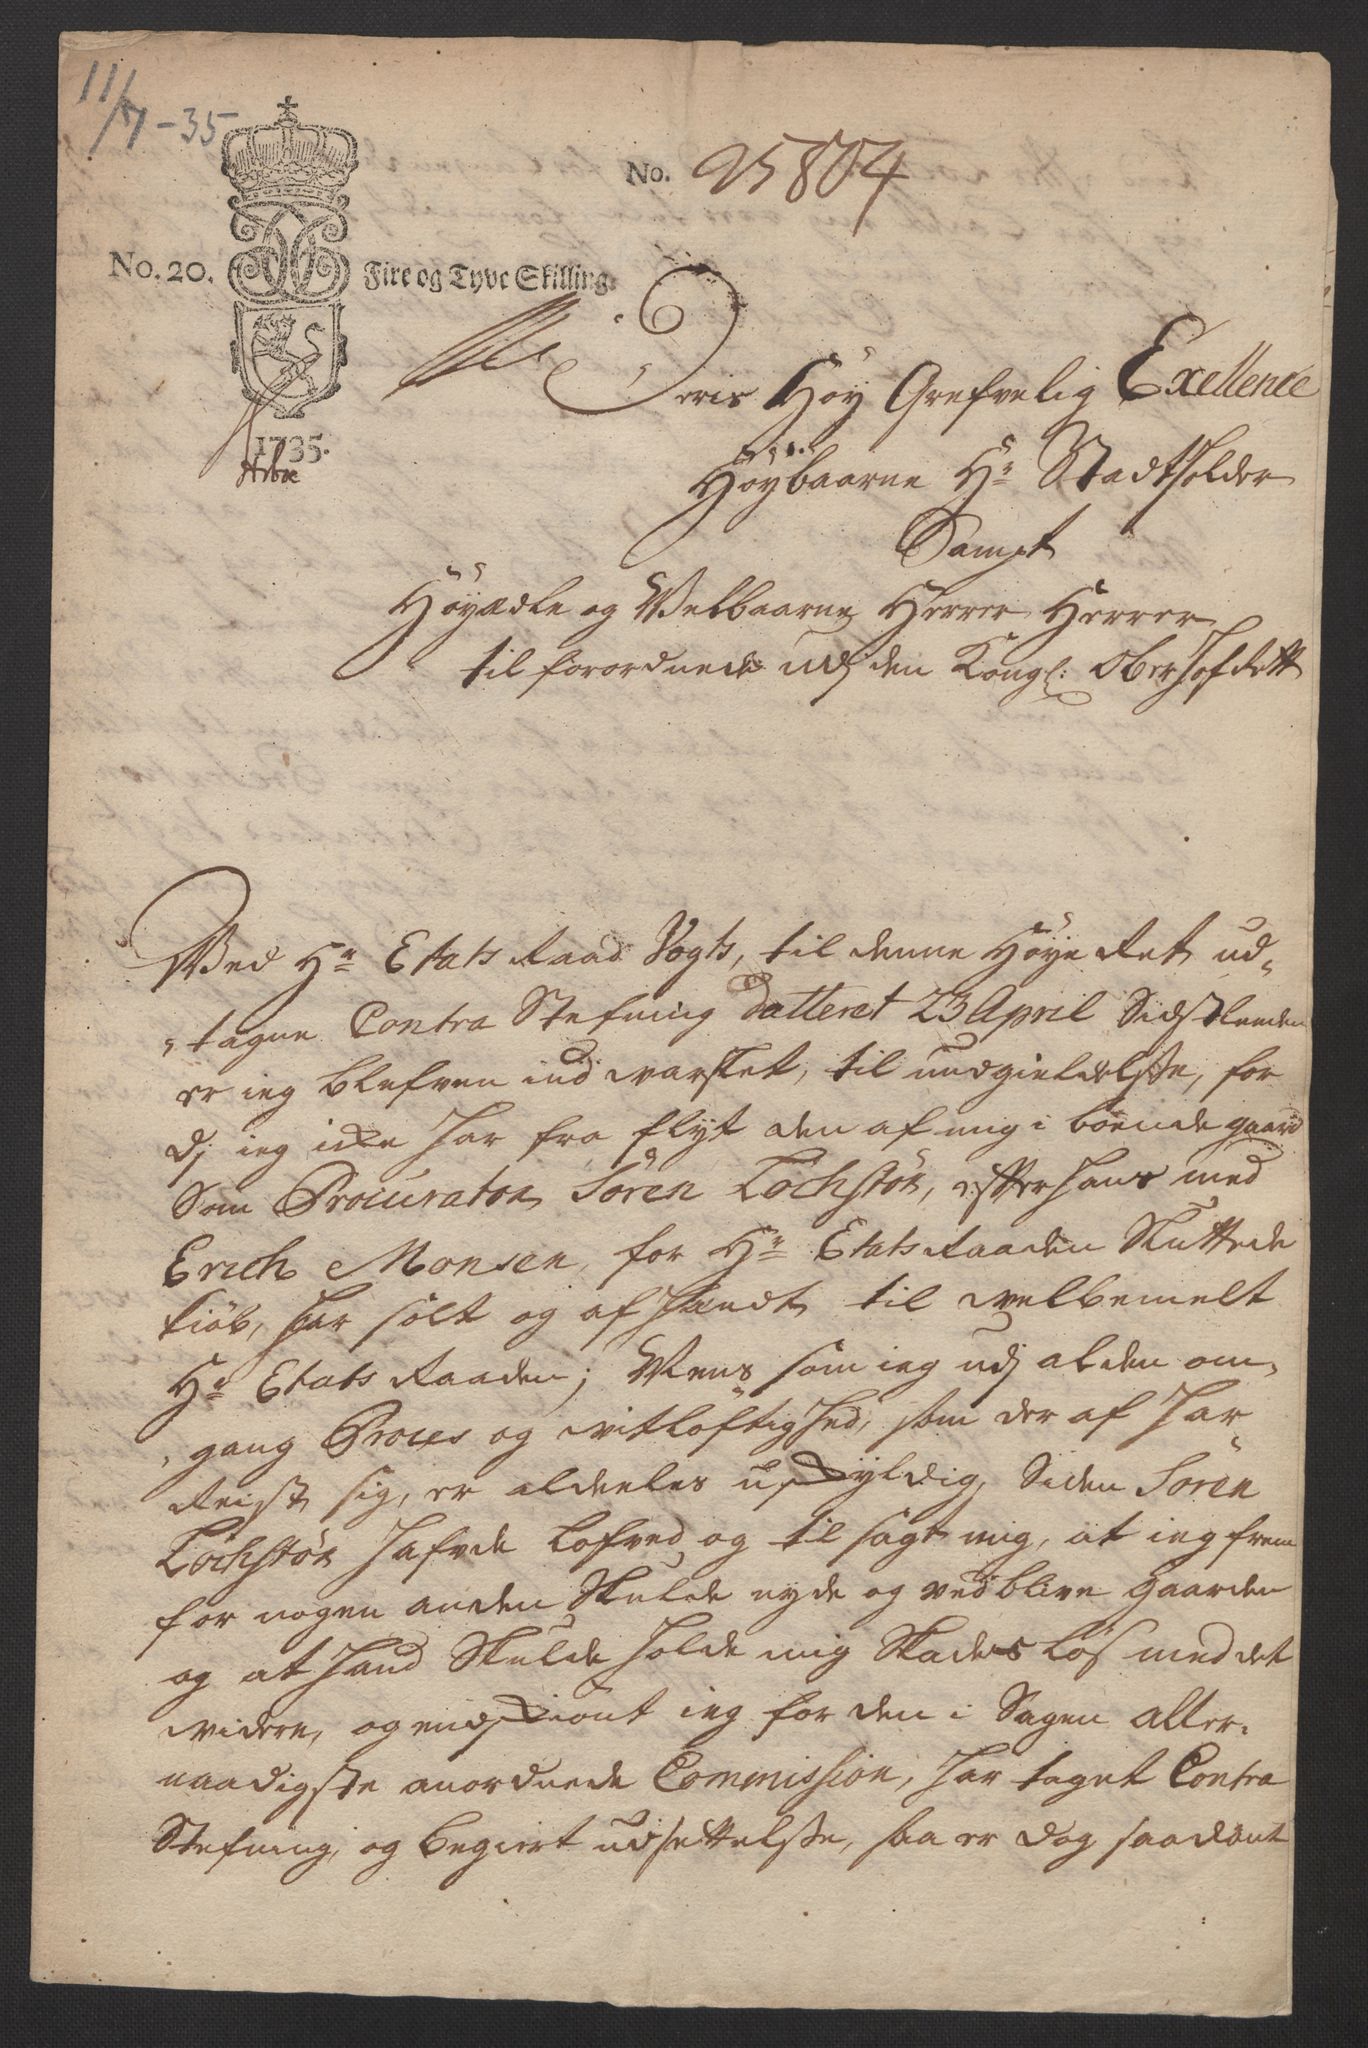 11/7-35
No. 25804
No. 20. Fire og Tyve Skilling.
1735.
Arboe
Deris Høy Grefvelig Exellence
Høybaarne Hr Stadtholder
Sampt
Høyædle og Velbaarne Herrer Herrer
til forordnede udj den Kongl: OberHofRett
Ved Hr Etats Raad Vogts, til denne Høye Ret ud-
tagne Contra Stefning datteret 23 April Sidstleeden
er ieg blefven indvarslet, til undgieldelsse, for
dj ieg icke har fra flyt den af mig i boende gaard
Som Procurator Sören Lochstör, efter hans med
Erich Monsen, for Hr Etats Raaden Sluttede
kiöb, har solt og afhændt til velbemelt
Hr Etats Raaden; Mens som ieg udj al den om-
gang Proces og vitløftighed, som der af har
Reist sig, er aldeeles uskyldig, Siden Sören
Lochstör hafvde lofved og til sagt mig, at ieg frem
for nogen anden Skulde nyde og ved blive gaarden
og at hand Skulde holde mig Skadesløs med det
videre, og endskiønt ieg for den i Sagen aller-
naadigste anordnede Commission, har taget Contra
Stefning, og begiert udsettelsse, saa er dog saadant